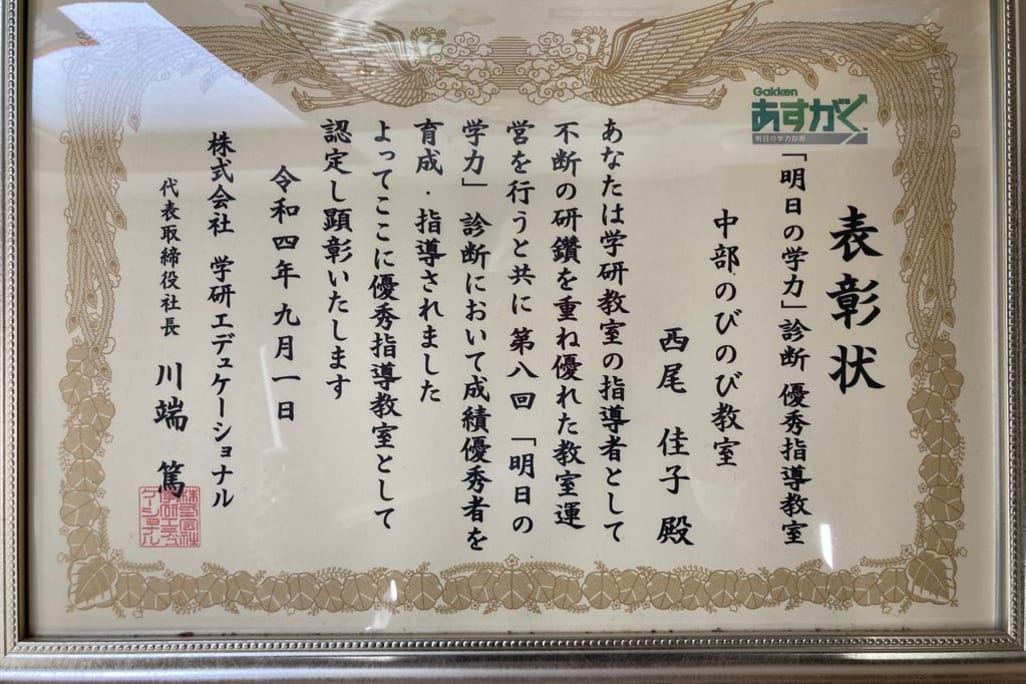 Gakken
あすがく
明日の学力診断
表彰状
「明日の学力」診断 優秀指導教室
中部のびのび教室
西尾 佳子 殿
あなたは学研教室の指導者として
不断の研鑽を重ね優れた教室運
営を行うと共に 第八回 「明日の
学力」 診断において成績優秀者を
育成・指導されました
よってここに優秀指導教室として
認定し顕彰いたします
令和四年 九月一日
株式会社 学研エデュケーショナル
代表取締役社長 川端 篤
株式会社
学研エデュ
ケーショナル